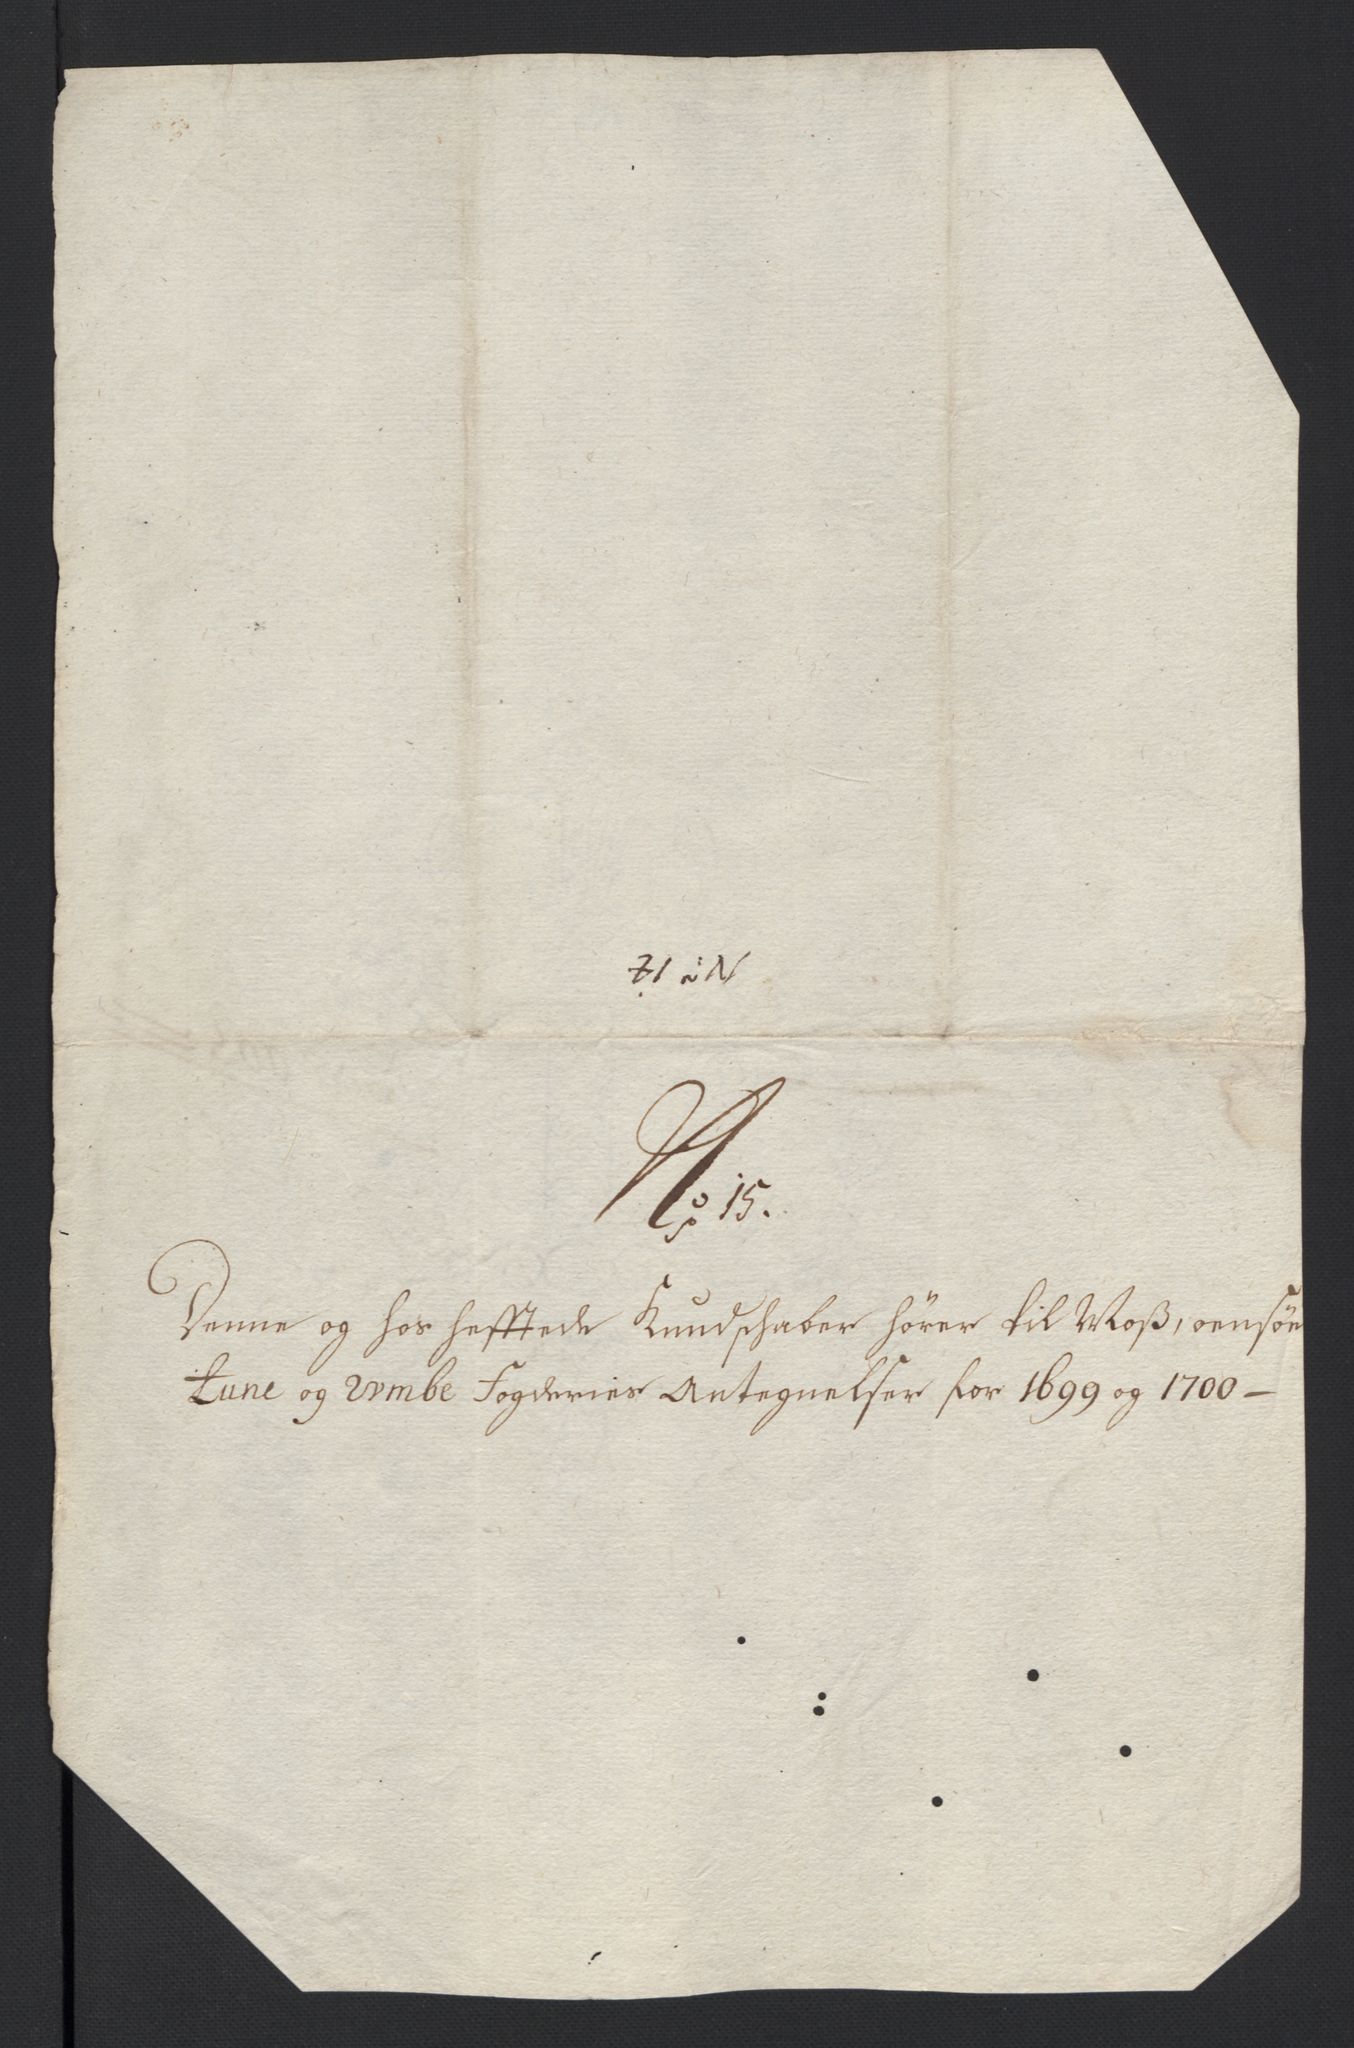 No 12
No 15.
Denne og hos hefftede Kundschaber hører til Moss, oensøe
tune og vembe Fogderies Antegnelser for 1699 og 1700 –